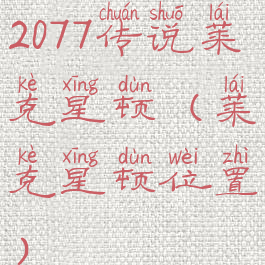 chuán shuō lái
2077传说莱
kè xīng dùn lái
克星顿（莱
kè xīng dùn wèi zhì
克星顿位置
）